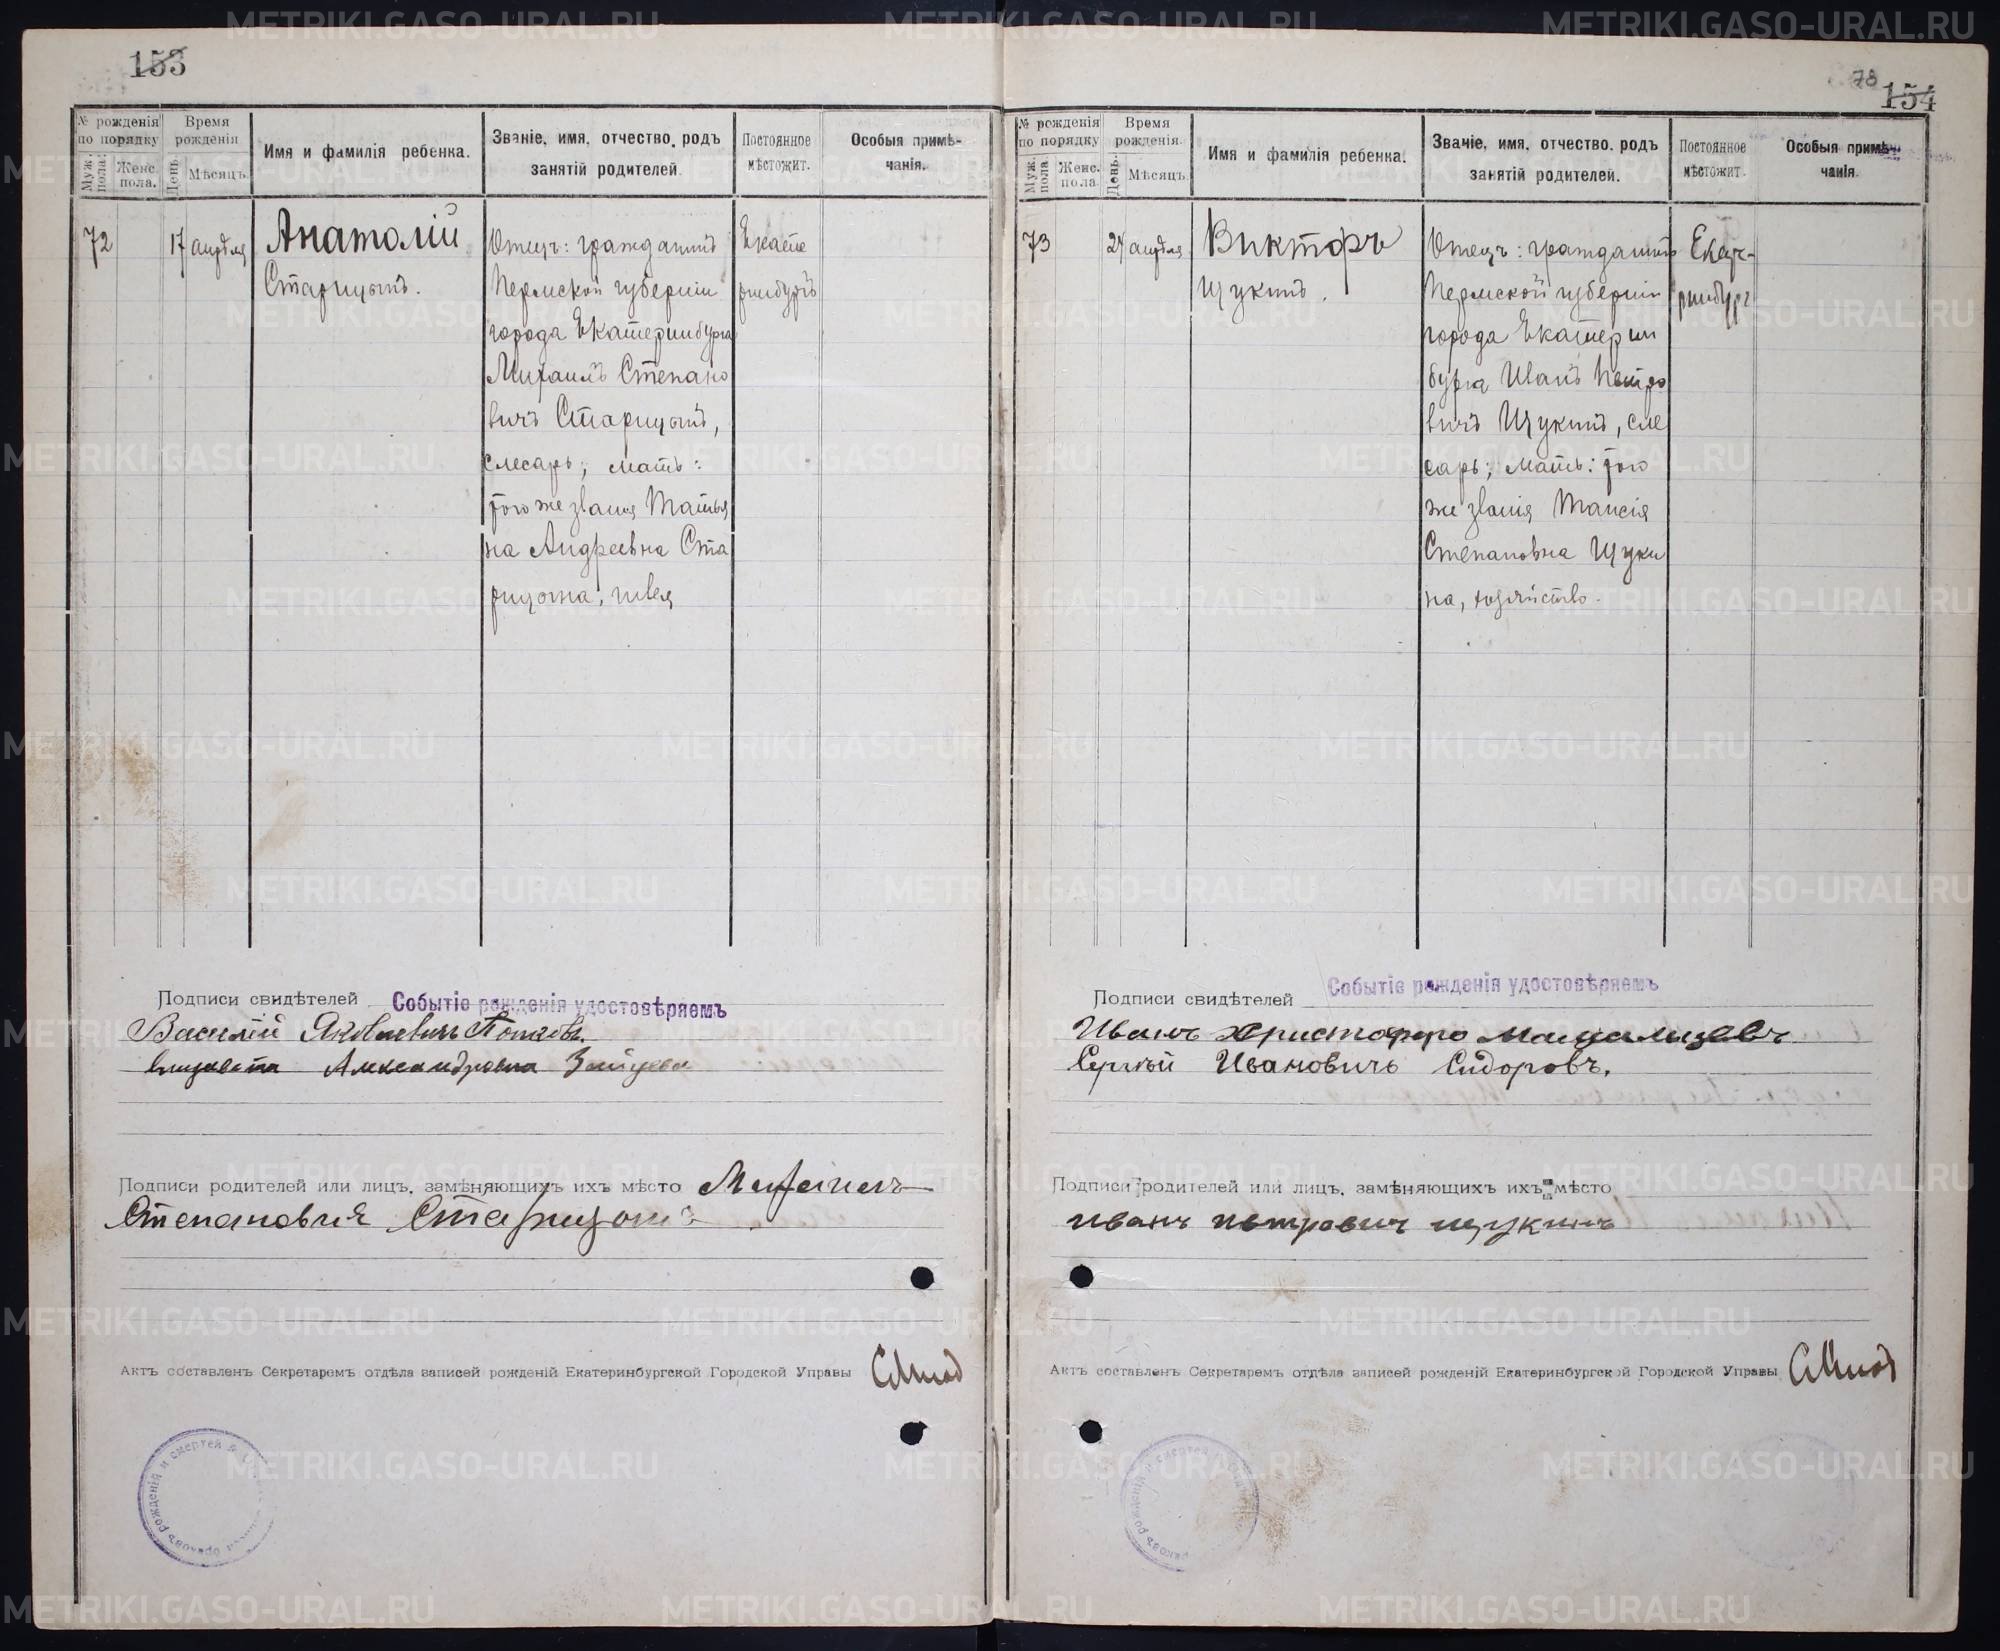 153
№ рожденія по порядку
Время рожденія
Имя и фамилія ребенка.
Званіе, имя, отчество, родъ занятій родителей.
Постоянное мѣстожит.
Особыя примѣчанія.
Муж. пола.
Женс. пола.
День.
Мѣсяцъ.
72
17 апрѣля
Анатолій
Старицынъ.
Отецъ: гражданинъ
Пермской губерніи
города Екатеринбурга
Михаилъ Степано
вичъ Старицынъ,
слесарь; мать:
того же званія Татья
на Андреевна Ста
рицына, швея
Екате
ринбургъ
Подписи свидѣтелей
Событіе рожденія удостовѣряемъ
Василій Яковлевичъ
Елизавета Александровна Зайцева
Подписи родителей или лицъ, замѣняющихъ ихъ мѣсто Михаилъ
Степановичъ Старицынъ
Актъ составленъ Секретаремъ отдѣла записей рожденій Екатеринбургской Городской Управы
рожденій и смертей
браковъ
73
154
№ рожденія по порядку
Время рожденія.
Имя и фамилія ребенка.
Званіе, имя, отчество, родъ занятій родителей.
Постоянное мѣстожит.
Особыя примѣчанія.
Муж. пола
Женс. пола
День.
Мѣсяцъ.
73
24 апрѣля
Викторъ
Щукинъ.
Отецъ: гражданинъ
Пермской губерніи
города Екатерин
бурга Иванъ Петро
вичъ Щукинъ, сле
сарь; мать: того
же званія Таисія
Степановна Щуки
на, хозяйство.
Екате-
ринбург
Подписи свидѣтелей
Событіе рожденія удостовѣряемъ
Иванъ
Сергѣй Ивановичъ Сидоровъ.
Подписи родителей или лицъ, замѣняющихъ ихъ мѣсто
иванъ петровичъ щукинъ
Актъ составленъ Секретаремъ отдѣла записей рожденій Екатеринбургской Городской Управы
рожденій и смертей
METRIKI.GASO-URAL.RU